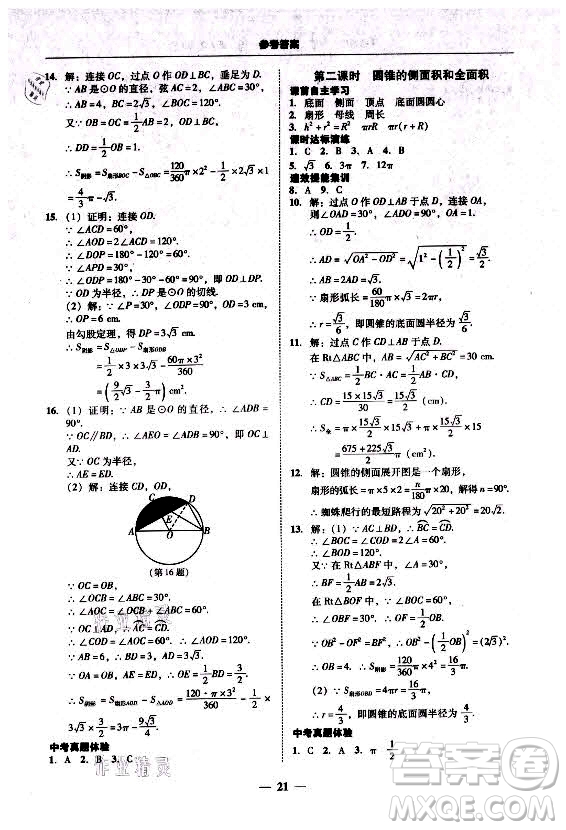 参考答案
14. 解：连接 OC，过点 O 作 OD⊥BC，垂足为 D.
∵ AB 是⊙O 的直径，弦 AC=2，∠ABC=30°，
∴ AB=4，∴ OD=\frac{1}{2}OB=1.
又∵ OB=OC=\frac{1}{2}AB=2，
∴ DD=\frac{1}{2}OB=1.
∴ S_{阴影}=S_{扇形BOC}-S_{△AOC}=\frac{120}{360}π×2²-\frac{1}{2}×
1=\frac{4}{3}π-\sqrt{3}.
15. (1) 证明：连接 OD.
∵ ∠ACD=60°，
∴ ∠AOD=2∠ACD=120°.
∴ ∠DOP=180°-120°=60°.
∵ ∠APD=30°，
∴ ∠ODP=180°-30°-60°=90°，即 OD⊥DP.
∵ OD 为半径，∴ DP 是⊙O 的切线.
(2) 解：∵ ∠P=30°，∠ODP=90°，OD=3 cm，
∴ OP=6 cm.
由勾股定理，得 DP=3\sqrt{3} cm.
∴ S_{阴影}=S_{△ODP}-S_{扇形ODB}
=\frac{1}{2}×3×3\sqrt{3}-\frac{60π×3²}{360}
=(\frac{9}{2}\sqrt{3}-\frac{3}{2}π) cm².
16. (1) 证明：∵ AB 是⊙O 的直径，∴ ∠ADB=
90°.
∵ OC∥BD，∴ ∠AEO=∠ADB=90°，即 OC⊥
AD.
又∵ OC 为半径，
∴ AE=ED.
(2) 解：连接 CD，OD.
C
D
E
A
O
B
(第 16 题)
∵ OC=OB，
∴ ∠OCB=∠ABC=30°.
∴ ∠AOC=∠OCB+∠ABC=60°.
∵ OC⊥AD，
∴ ∠COD=∠AOC=60°.
∴ ∠AOD=120°.
∵ AB=6，∴ BD=3，AD=3\sqrt{3}.
∵ OA=OB，AE=ED，∴ OE=\frac{1}{2}BD=\frac{3}{2}.
∴ S_{阴影}=S_{扇形AOD}-S_{△AOD}=\frac{120·π×3²}{360}-\frac{1}{2}×
3\sqrt{3}×\frac{3}{2}=3π-\frac{9\sqrt{3}}{4}.
中考真题体验
1. A 2. B 3. C
第二课时 圆锥的侧面积和全面积
课前自主学习
1. 底面 侧面 顶点 底面圆圆心
2. 扇形 母线 周长
3. h²+r²=R² πrR πrR+πr²
课时达标演练
1. C 2. B 3. A 4. B
5. \sqrt{3} 6. 3π 7. 2π
速效提能集训
8. A 9. C
10. 解：过点 O 作 OD⊥AB 于点 D，连接 OA，
则∠OAD=30°，∠ADO=90°，OA=1.
∴ OD=\frac{1}{2}.
∴ AD=\sqrt{OA²-OD²}=\sqrt{1²-(\frac{1}{2})²}=\frac{\sqrt{3}}{2}.
∴ AB=2AD=\sqrt{3}.
∵ 扇形弧长=\frac{60}{180}π×\sqrt{3}=2πr，
∴ r=\frac{\sqrt{3}}{6}，即圆锥的底面圆半径为\frac{\sqrt{3}}{6}.
11. 解：过点 C 作 CD⊥AB 于点 D.
在 Rt△ABC 中，AB=\sqrt{AC²+BC²}=30 cm.
∵ S_{△ABC}=\frac{1}{2}BC·AC=\frac{1}{2}AB·CD，
∴ CD=\frac{15×15\sqrt{3}}{30}=\frac{15\sqrt{3}}{2}(cm).
∴ S_{表}=π×\frac{15\sqrt{3}}{2}×15\sqrt{3}+π×\frac{15\sqrt{3}}{2}×15
=\frac{675+225\sqrt{3}}{2}π(cm²).
12. 解：圆锥的侧面展开图是一个扇形，
扇形的弧长=π×5×2=\frac{n}{180}π×20，解得 n=90°，
∴ 蜘蛛爬行的最短路程为\sqrt{20²+20²}=20\sqrt{2}.
13. 解：(1) ∵ AC⊥BD，∴ \overset{⌢}{BC}=\overset{⌢}{CD}.
∴ ∠BOC=2∠A=60°.
∴ ∠BOD=120°.
∵ 在 Rt△ABF 中，∠A=30°，
∴ BF=\frac{1}{2}AB=2\sqrt{3}.
在 Rt△BOF 中，∠OBF=30°，
∴ OF=\frac{1}{2}OB.
∵ OB²-OF²=BF²，∴ OB²-(\frac{1}{2}OB)²=(2\sqrt{3})².
∴ OB=4. ∴ S_{阴影}=\frac{120}{360}π×4²=\frac{16}{3}π.
(2) ∵ S_{扇形OBD}=4πr，∴ 4πr=\frac{16}{3}π.
∴ r=\frac{4}{3}，即这个圆锥的底面圆半径为\frac{4}{3}.
中考真题体验
1. C 2. A 3. π \frac{1}{2}
21
作业精灵